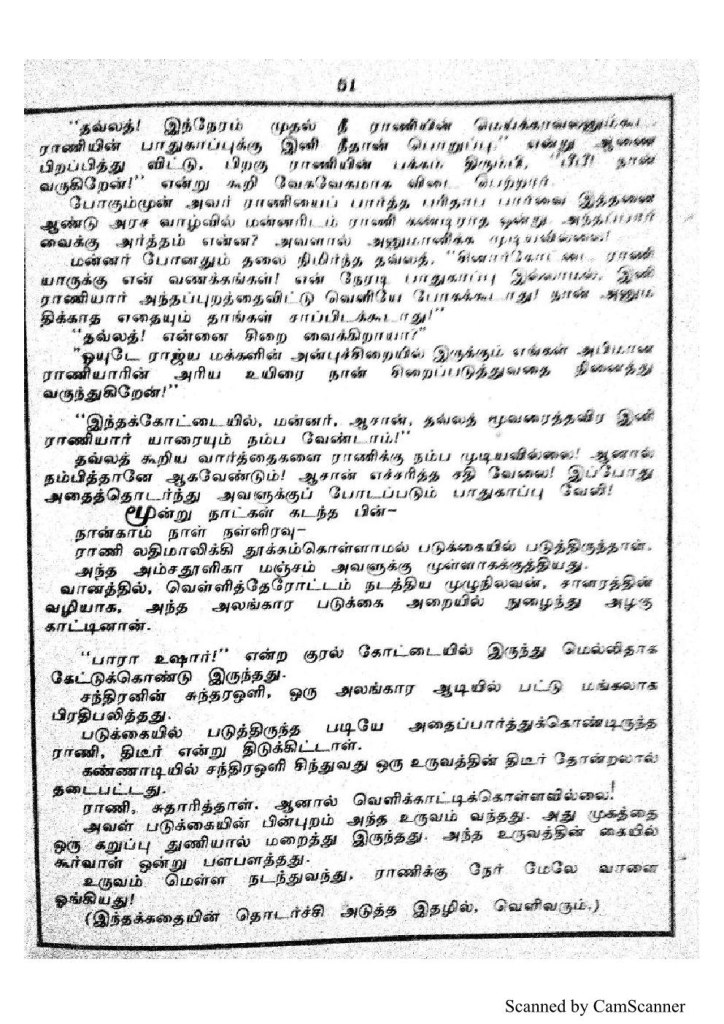 51
"தவ்லத்! இந்நேரம் முதல் நீ ராணியின் மெய்க்காவலனுமாக!..
ராணியின் பாதுகாப்புக்கு இனி நீதான் பொறுப்பு." என்று ஆணை
பிறப்பித்து விட்டு, பிறகு ராணியின் பக்கம் திரும்பி, "பீபீ! நான்
வருகிறேன்!" என்று கூறி வேகவேகமாக விடை பெற்றார்.
போகும்முன் அவர் ராணியைப் பார்த்த பரிதாப பார்வை இத்தனை
ஆண்டு அரச வாழ்வில் மன்னரிடம் ராணி கண்டிராத ஒன்று. அந்தப்பார்
வைக்கு அர்த்தம் என்ன? அவளால் அனுமானிக்க முடியவில்லை!
மன்னர் போனதும் தலை நிமிர்ந்த தவ்லத், ராணி
யாருக்கு என் வணக்கங்கள்! என் நேரடி பாதுகாப்பு இல்லாமல், இனி
ராணியார் அந்தப்புறத்தைவிட்டு வெளியே போகக்கூடாது! நான் அனும
திக்காத எதையும் தாங்கள் சாப்பிடக்கூடாது!"
"தவ்லத்! என்னை சிறை வைக்கிறாயா?"
"ஓயுடே ராஜ்ய மக்களின் அன்புச்சிறையில் இருக்கும் எங்கள் அபிமான
ராணியாரின் அரிய உயிரை நான் சிறைப்படுத்துவதை நினைத்து
வருந்துகிறேன்!"
"இந்தக்கோட்டையில், மன்னர், ஆசான், தவ்லத் மூவரைத்தவிர இனி
ராணியார் யாரையும் நம்ப வேண்டாம்!"
தவ்லத் கூறிய வார்த்தைகளை ராணிக்கு நம்ப முடியவில்லை! ஆனால்
நம்பித்தானே ஆகவேண்டும்! ஆசான் எச்சரித்த சதி வேலை! இப்போது
அதைத்தொடர்ந்து அவளுக்குப் போடப்படும் பாதுகாப்பு வேலி!
மூன்று நாட்கள் கடந்த பின்–
நான்காம் நாள் நள்ளிரவு–
ராணி லதிமாலிக்கி தூக்கம்கொள்ளாமல் படுக்கையில் படுத்திருந்தாள்.
அந்த அம்சதூளிகா மஞ்சம் அவளுக்கு முள்ளாகக்குத்தியது.
வானத்தில், வெள்ளித்தேரோட்டம் நடத்திய முழுநிலவன், சாளரத்தின்
வழியாக, அந்த அலங்கார படுக்கை அறையில் நுழைந்து அழகு
காட்டினான்.
"பாரா உஷார்!" என்ற குரல் கோட்டையில் இருந்து மெல்லிதாக
கேட்டுக்கொண்டு இருந்தது.
சந்திரனின் சுந்தரஒளி, ஒரு அலங்கார ஆடியில் பட்டு மங்கலாக
பிரதிபலித்தது.
படுக்கையில் படுத்திருந்த படியே அதைப்பார்த்துக்கொண்டிருந்த
ராணி, திடீர் என்று திடுக்கிட்டாள்.
கண்ணாடியில் சந்திரஒளி சிந்துவது ஒரு உருவத்தின் திடீர் தோன்றலால்
தடைபட்டது.
ராணி, சுதாரித்தாள். ஆனால் வெளிக்காட்டிக்கொள்ளவில்லை!
அவள் படுக்கையின் பின்புறம் அந்த உருவம் வந்தது. அது முகத்தை
ஒரு கறுப்பு துணியால் மறைத்து இருந்தது. அந்த உருவத்தின் கையில்
கூர்வாள் ஒன்று பளபளத்தது.
உருவம் மெள்ள நடந்துவந்து, ராணிக்கு நேர் மேலே வாளை
ஓங்கியது!
(இந்தக்கதையின் தொடர்ச்சி அடுத்த இதழில், வெளிவரும்.)
Scanned by CamScanner